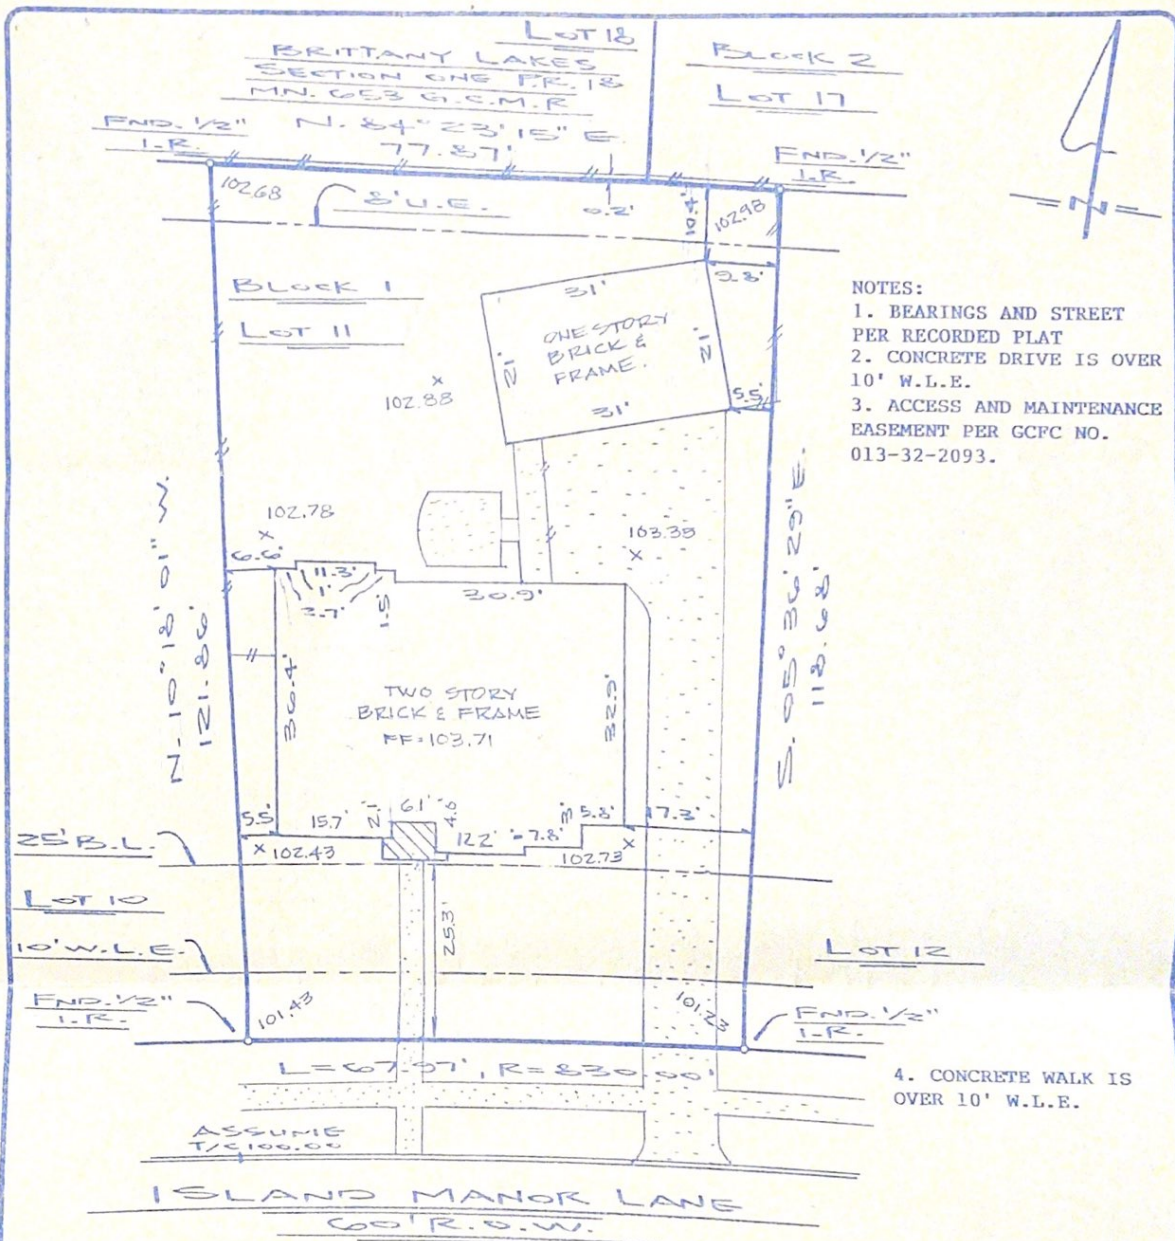 LOT 18
BRITTANY LAKES
SECTION ONE P.R. 18
MN. 653 G.C.M.R
BLOCK 2
LOT 17
FND. 1/2"
I.R.
N. 84° 23' 15" E.
77.87'
FND. 1/2"
I.R.
102.68
8' U.E.
0.2'
10.4'
102.98
N
BLOCK 1
LOT 11
31'
9.8'
ONE STORY
BRICK &
FRAME.
21'
21'
31'
5.5'
102.88
NOTES:
1. BEARINGS AND STREET
PER RECORDED PLAT
2. CONCRETE DRIVE IS OVER
10' W.L.E.
3. ACCESS AND MAINTENANCE
EASEMENT PER GCFC NO.
013-32-2093.
N. 10° 18' 01" W.
121.86'
S. 05° 36' 29" E.
118.68'
102.78
6.6'
11.3'
1'
1.5'
30.9'
103.35
36.4'
TWO STORY
BRICK & FRAME
FF=103.71
32.9'
5.5'
15.7'
2.1
6.1'
4.6
12.2'
7.8'
3'
5.8'
17.3'
25' B.L.
102.43
102.73
LOT 10
25.3'
10' W.L.E.
LOT 12
FND. 1/2"
I.R.
101.43
101.23
FND. 1/2"
I.R.
L=67.97', R=830.00'
4. CONCRETE WALK IS
OVER 10' W.L.E.
ASSUME
T/C 100.00
ISLAND MANOR LANE
60' R.O.W.